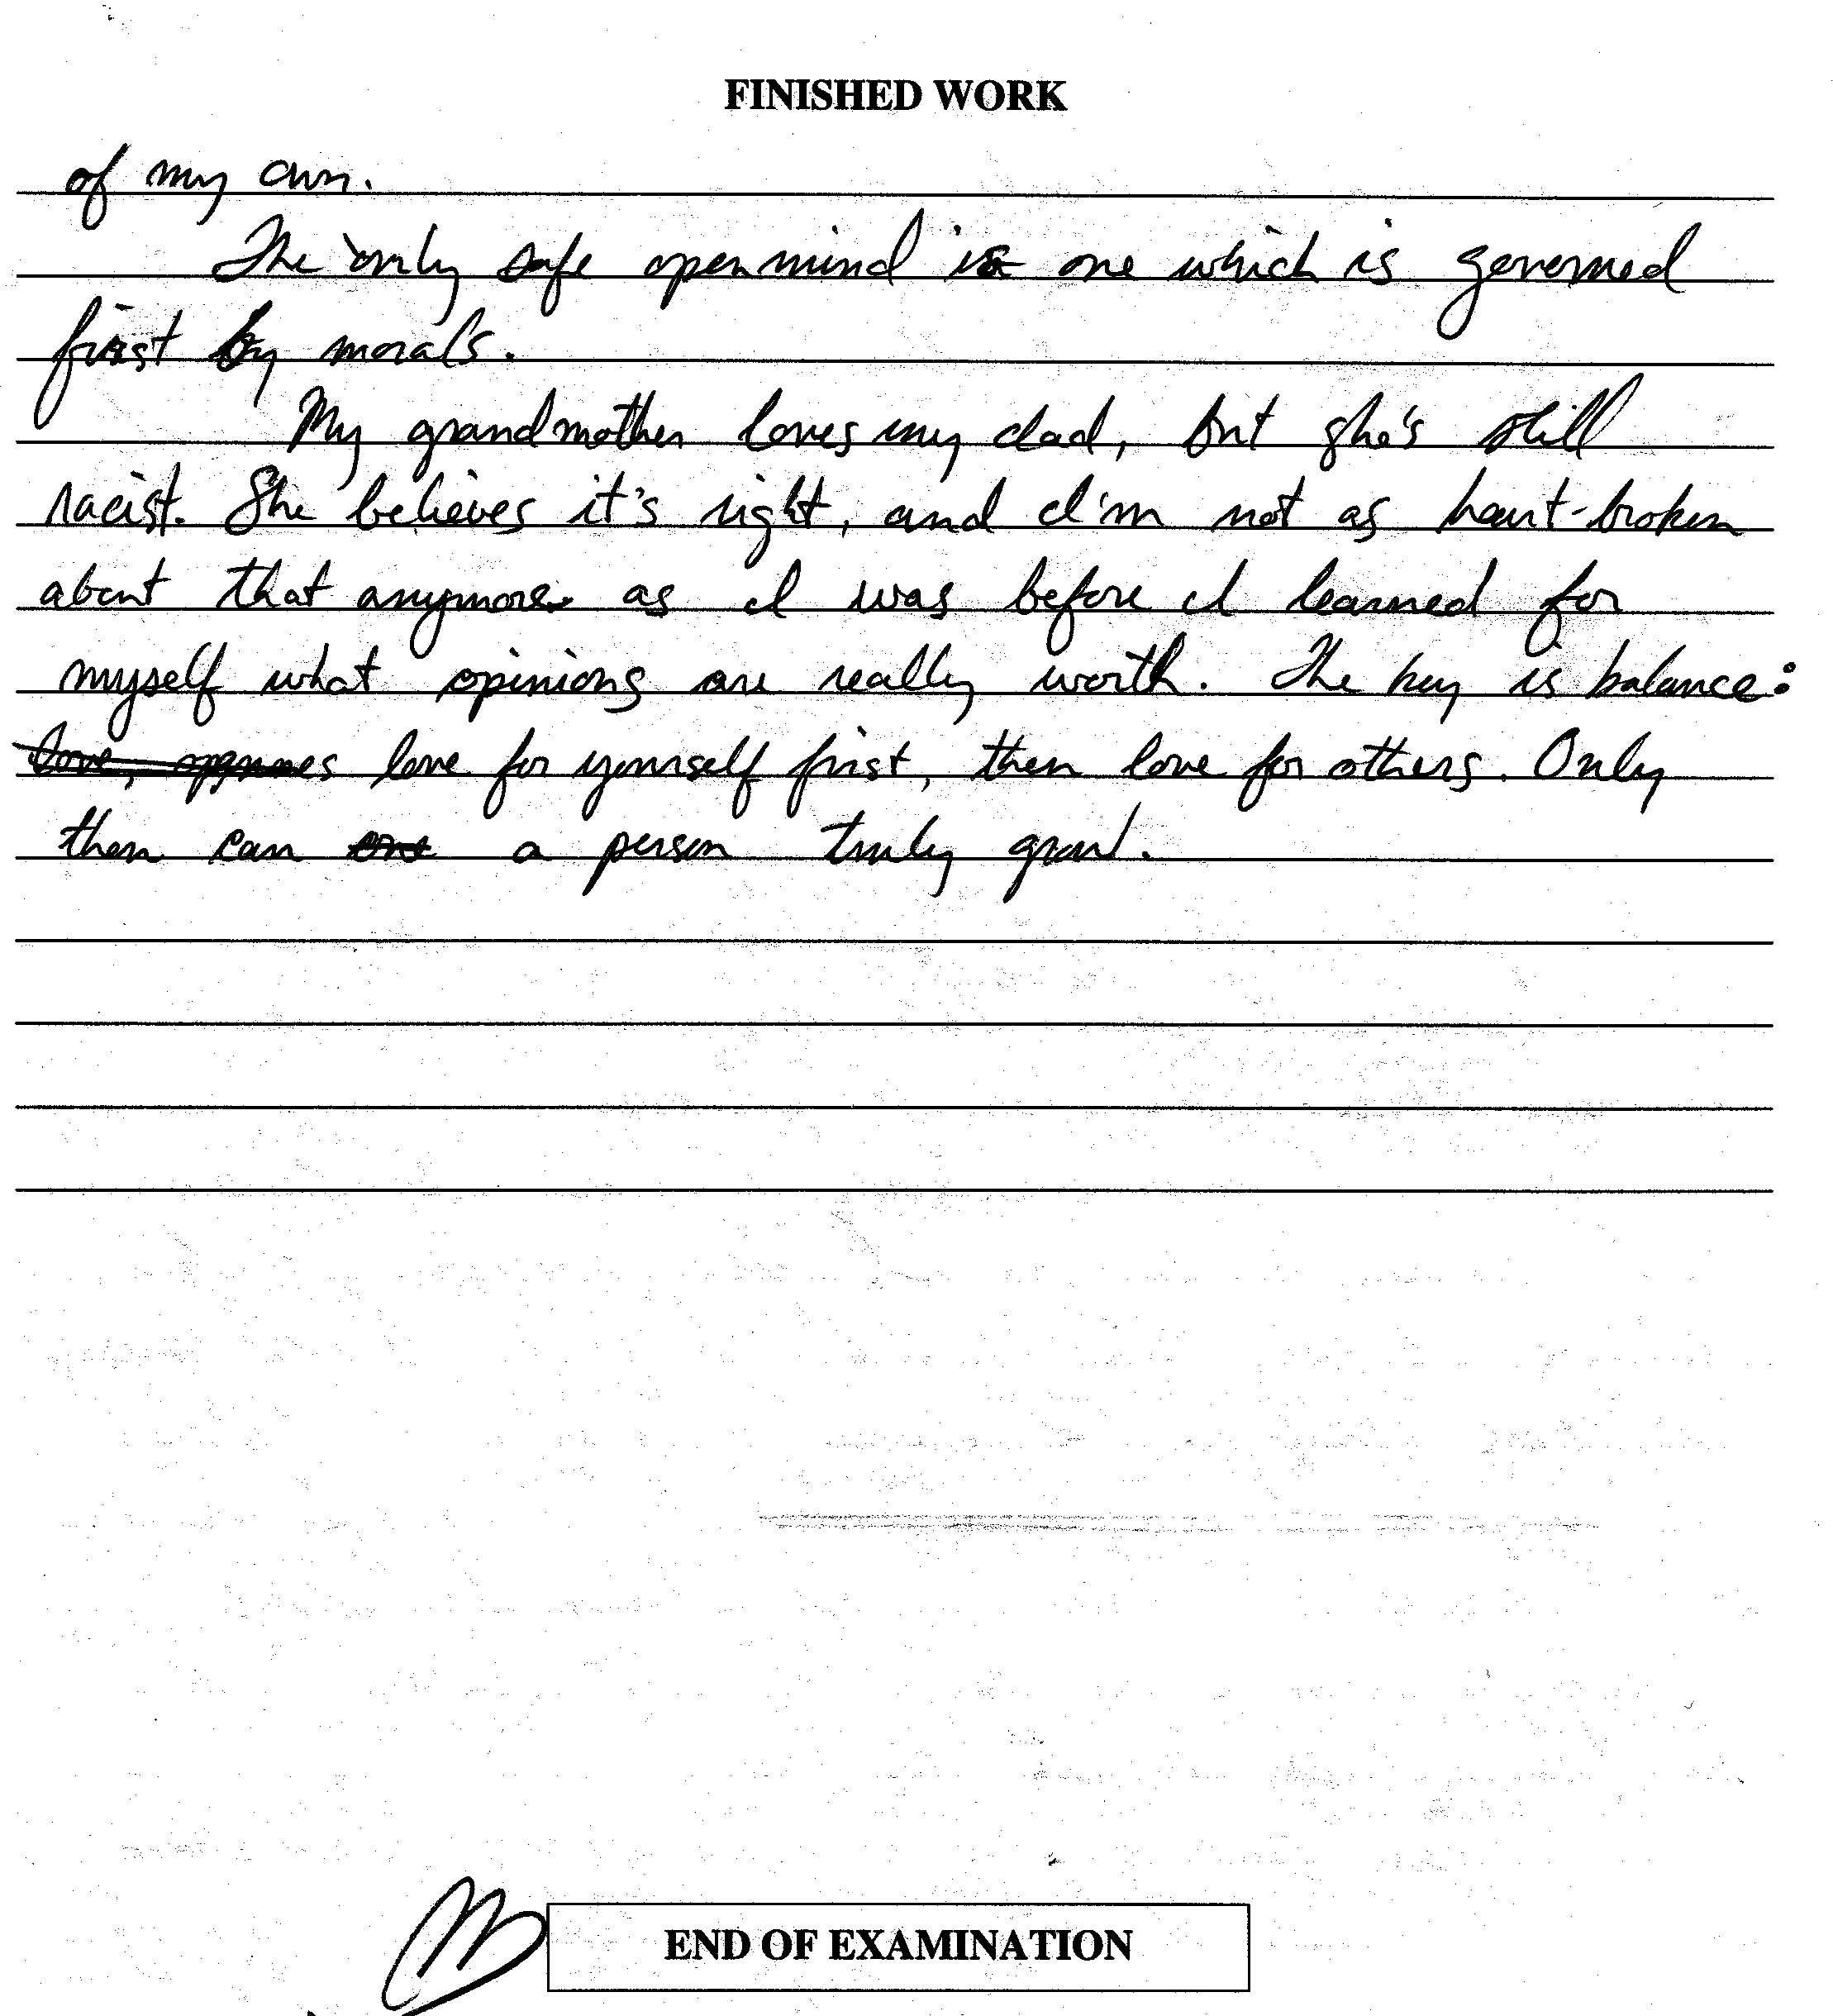 FINISHED WORK
of my own.
The only safe open mind is one which is governed
first by morals.
My grandmother loves my dad, but she's still
racist. She believes it's right, and I'm not as heart-broken
about that anymore as I was before I learned for
myself what opinions are really worth. The key is balance:
love for yourself first, then love for others. Only
then can a person truly grow.
END OF EXAMINATION